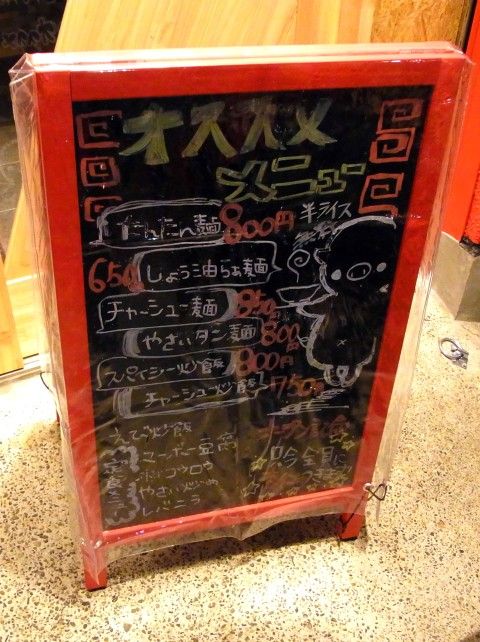 オススメ
メニュー
たんたん麺 800円 半ライス
650 しょう油らぁ麺
チャーシュー麺 850
やさいタン麺 800
スパイシー炒飯 800円
チャーシュー炒飯 750
定食
えび炒飯
マーボー豆腐
ホイコウロウ
やさい炒め
レバニラ